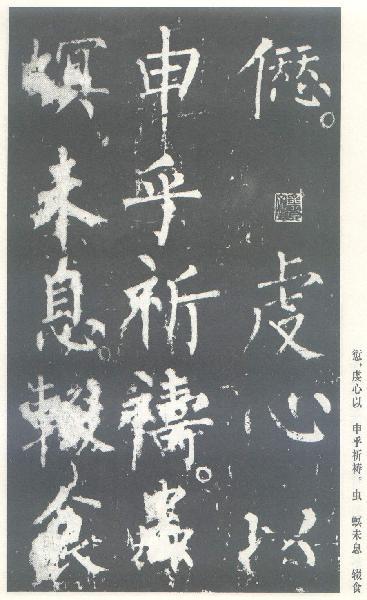 虔心以
申乎祈禱。蟲
螟未息。輟食
愆，虔心以 申乎祈祷。虫 螟未息 辍食